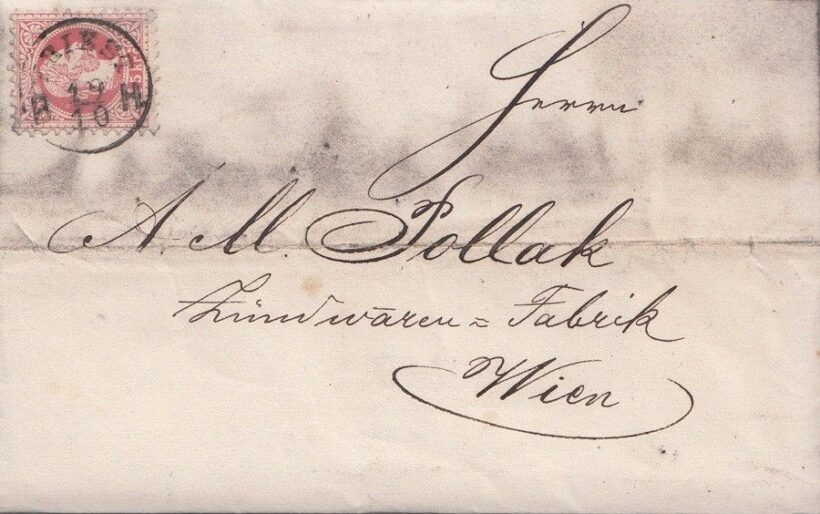 RIEST
19
H H
10
5 kr
Herrn
A. M. Pollak
Zündwaren=Fabrik
Wien